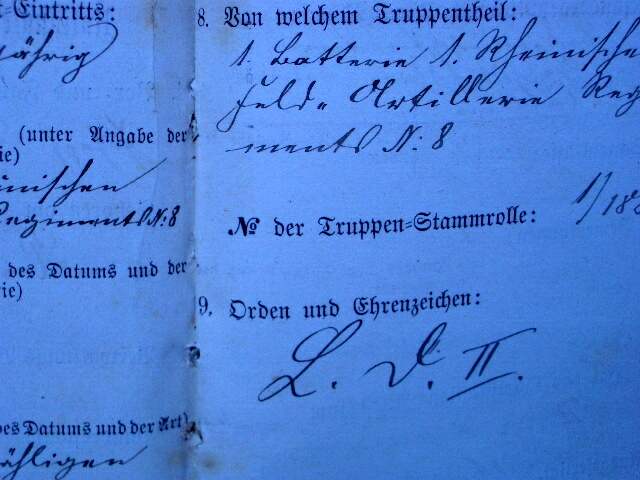 t-Eintritts:
jährig
(unter Angabe der
ie)
inischen
Regiments N: 8
des Datums und der
ie)
des Datums und der Art)
ähligen
8. Von welchem Truppentheil:
1. Batterie 1. Rheinische
Feld- Artillerie Reg
ments N: 8
№ der Truppen-Stammrolle: 1/188
9. Orden und Ehrenzeichen:
L. D. II.